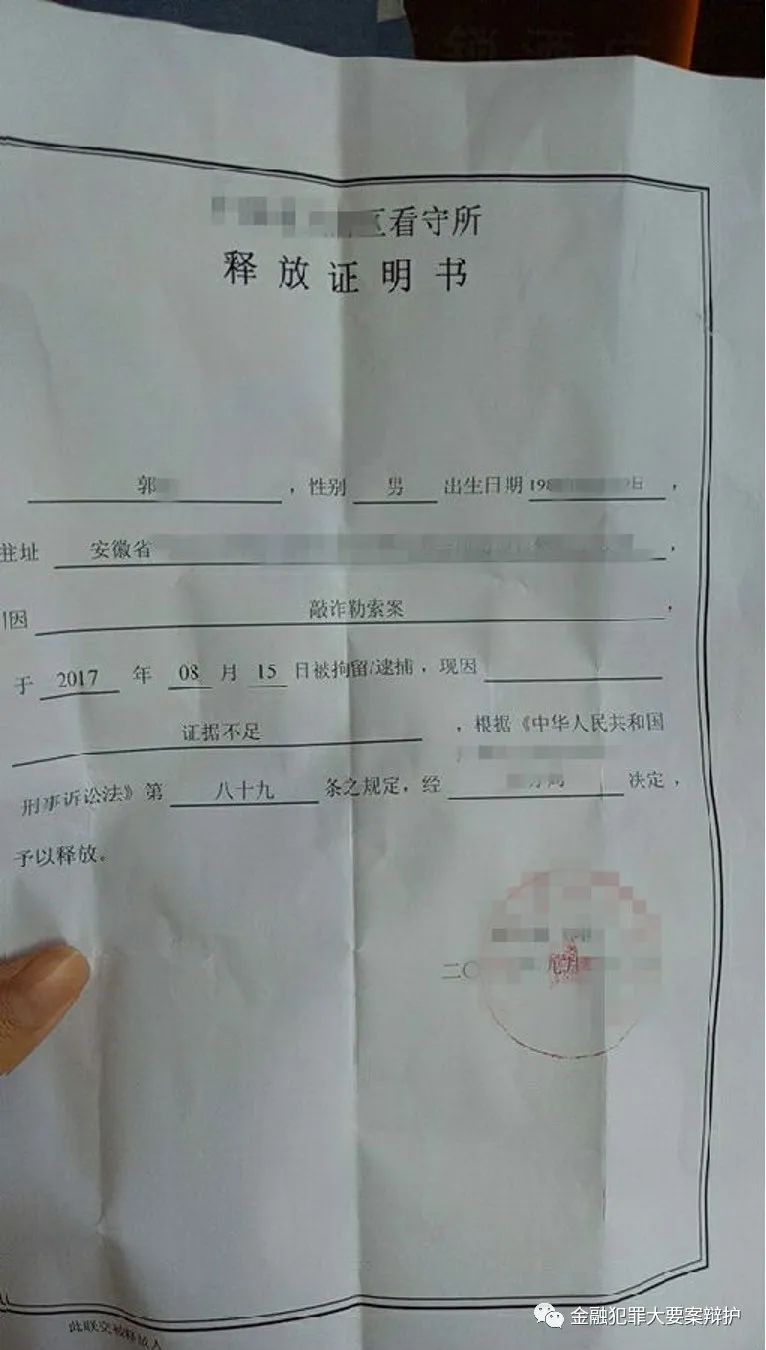 区看守所
释放证明书
郭 ，性别 男 出生日期 198 日，
住址 安徽省 ，
因 敲诈勒索案 ，
于 2017 年 08 月 15 日被拘留/逮捕，现因
证据不足 ，根据《中华人民共和国
刑事诉讼法》第 八十九 条之规定，经 分局 决定，
予以释放。
二〇
此联交被释放人
金融犯罪大要案辩护